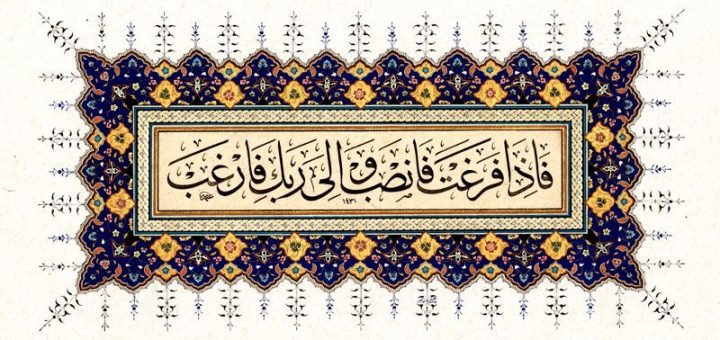 فَاِذَا فَرَغْتَ فَانْصَبْ وَاِلٰى رَبِّكَ فَارْغَبْ
١٤٣١